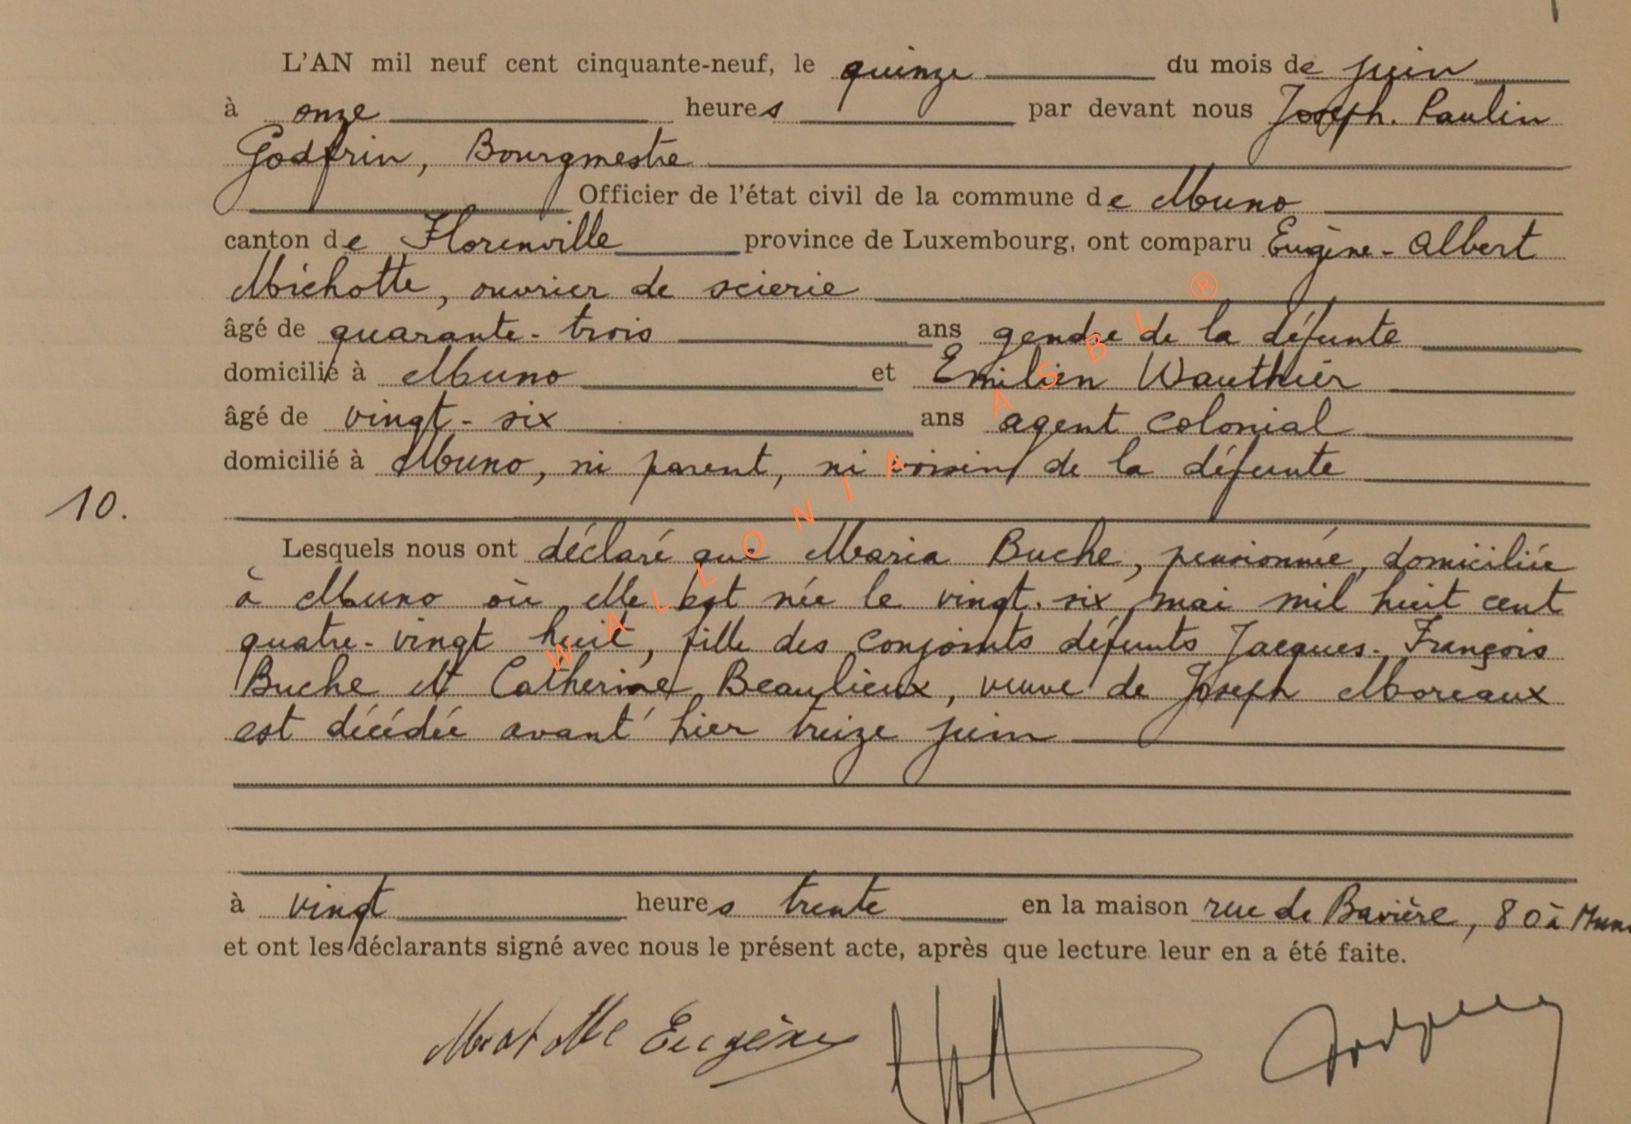 L'AN mil neuf cent cinquante-neuf, le quinze du mois de juin
à onze heures par devant nous Joseph. Paulin
Godfrin, Bourgmestre
Officier de l'état civil de la commune de Muno
canton de Florenville province de Luxembourg, ont comparu Eugène-Albert
Michotte, ouvrier de scierie
âgé de quarante-trois ans gendre de la défunte
domicilié à Muno et Emilien Wauthier
âgé de vingt-six ans agent colonial
domicilié à Muno, ni parent, ni voisin de la défunte
10.
Lesquels nous ont déclaré que Maria Buche, pensionnée, domiciliée
à Muno où elle est née le vingt-six mai mil huit cent
quatre-vingt huit, fille des conjoints défunts Jacques-François
Buche et Catherine Beaulieux, veuve de Joseph Moreaux
est décédée avant'hier treize juin
à vingt heures trente en la maison rue de Bavière, 80 à Muno
et ont les déclarants signé avec nous le présent acte, après que lecture leur en a été faite.
Eugène
WALLONIA ASBL ®